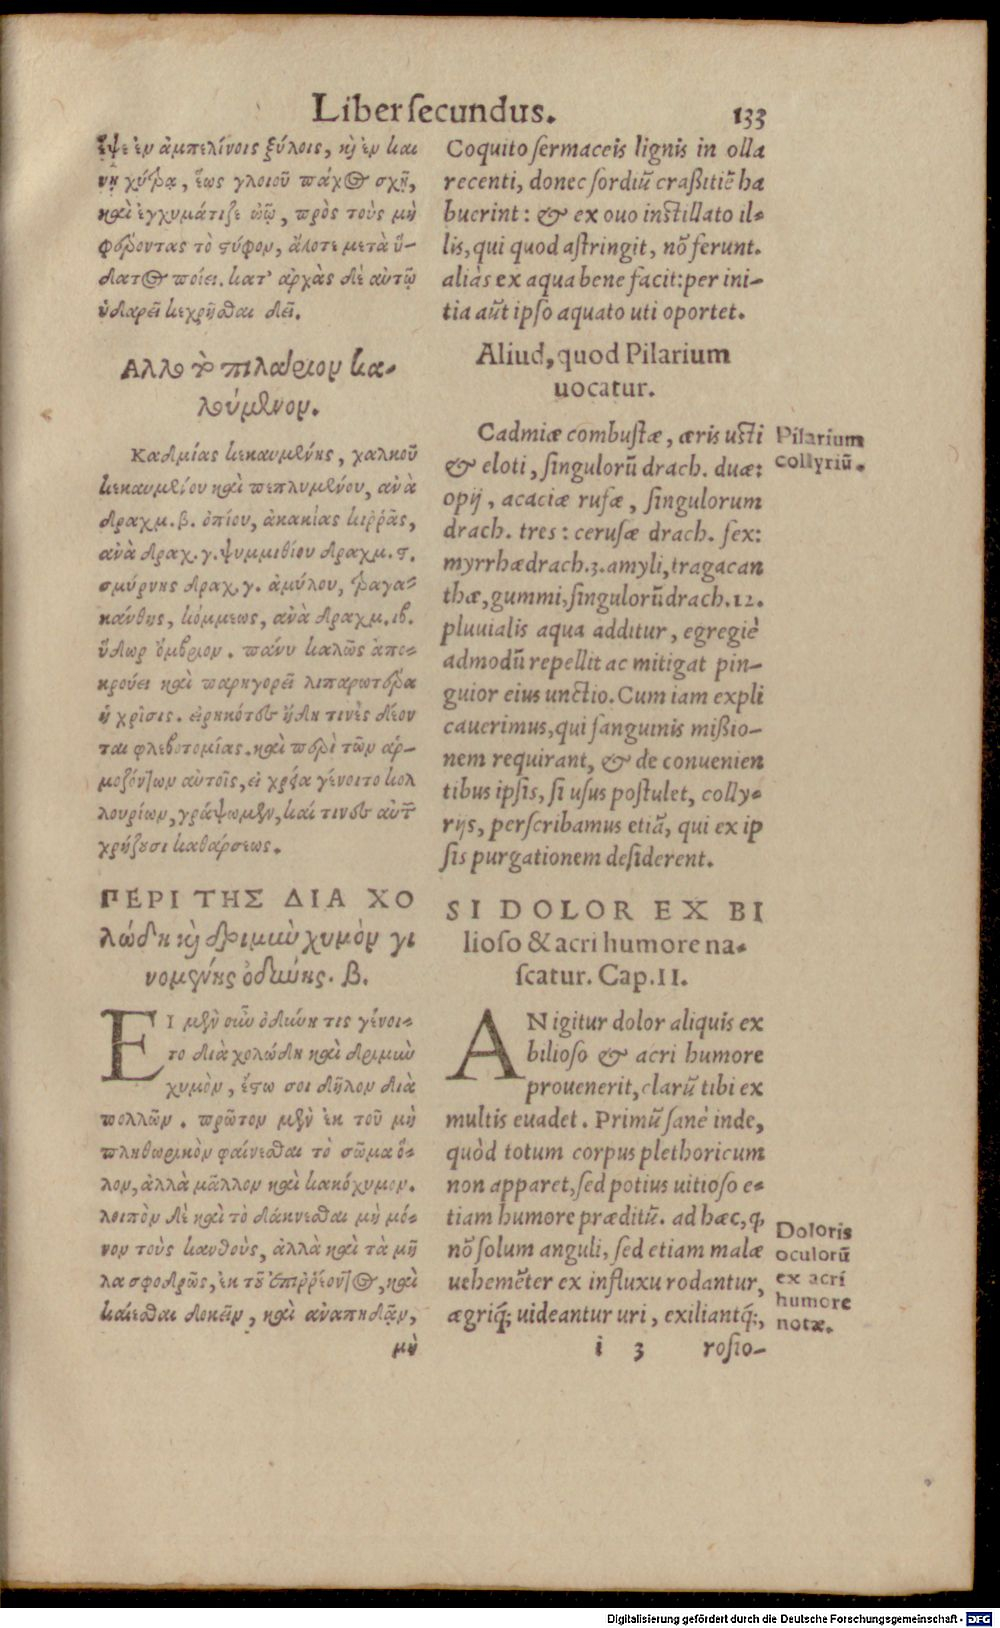 Liber secundus. 133
ἕψε ἐν ἀμπελίνοις ξύλοις, καὶ ἐν και
νῇ χύτρᾳ, ἕως γλοιοῦ πάχος σχῇ,
καὶ ἐγχυμάτιζε ὠῷ, πρὸς τοὺς μὴ
φέροντας τὸ στύφον, ἄλοτε μετὰ ὕ-
δατος ποίει. κατ' ἀρχὰς δὲ αὐτῷ
ὑδαρεῖ κεχρῆσθαι δεῖ.
Αλλο τὸ πιλάριον κα-
λούμενον.
Καδμίας κεκαυμένης, χαλκοῦ
κεκαυμένου καὶ πεπλυμένου, ἀνὰ
δραχμ. β. ὀπίου, ἀκακίας κιρρᾶς,
ἀνὰ δραχ. γ. ψιμμιθίου δραχμ. ϛ.
σμύρνης δραχ. γ. ἀμύλου, τραγα-
κάνθης, κόμμεως, ἀνὰ δραχμ. ιβ.
ὕδωρ ὄμβριον. πάνυ καλῶς ἀπο-
κρούει καὶ παρηγορεῖ λιπαρωτέρα
ἡ χρῖσις. εἰρηκότες ἤδη τινὲς δέον
ται φλεβοτομίας. καὶ περὶ τῶν ἁρ-
μοζόντων αὐτοῖς, εἰ χρεία γένοιτο κολ
λουρίων, γράψωμεν, καί τινες αὐτῶν
χρῄζουσι καθάρσεως.
ΠΕΡΙ ΤΗΣ ΔΙΑ ΧΟ
λώδη καὶ δριμὺν χυμὸν γι
νομένης ὀδύνης. Β.
ΕΙ μὲν οὖν ὀδύνη τις γένοι-
το διὰ χολώδη καὶ δριμὺν
χυμὸν, ἔστω σοι δῆλον διὰ
πολλῶν. πρῶτον μὲν ἐκ τοῦ μὴ
πληθωρικὸν φαίνεσθαι τὸ σῶμα ὅ-
λον, ἀλλὰ μᾶλλον καὶ κακόχυμον.
λοιπὸν δὲ καὶ τὸ δάκνεσθαι μὴ μό-
νον τοὺς κανθοὺς, ἀλλὰ καὶ τὰ μῆ
λα σφοδρῶς, ἐκ τοῦ ἐπιῤῥέοντος, καὶ
καίεσθαι δοκεῖν, καὶ ἀναπηδᾷν,
μὴ
Coquito sermaceis lignis in olla
recenti, donec sordiũ craßitiẽ ha
buerint: & ex ouo instillato il-
lis, qui quod astringit, nõ ferunt.
aliàs ex aqua bene facit: per ini-
tia aũt ipso aquato uti oportet.
Aliud, quod Pilarium
uocatur.
Cadmiæ combustæ, æris usti
& eloti, singulorũ drach. duæ:
opij, acaciæ rufæ, singulorum
drach. tres: cerusæ drach. sex:
myrrhæ drach. 3. amyli, tragacan
thæ, gummi, singulorũ drach. 12.
pluuialis aqua additur, egregiè
admodũ repellit ac mitigat pin-
guior eius unctio. Cum iam expli
cauerimus, qui sanguinis mißio-
nem requirant, & de conuenien
tibus ipsis, si usus postulet, colly-
rijs, perscribamus etiã, qui ex ip
sis purgationem desiderent.
SI DOLOR EX BI
lioso & acri humore na-
scatur. Cap. II.
AN igitur dolor aliquis ex
bilioso & acri humore
prouenerit, clarũ tibi ex
multis euadet. Primũ sanè inde,
quòd totum corpus plethoricum
non apparet, sed potius uitioso e-
tiam humore præditũ. ad hæc, q̃
nõ solum anguli, sed etiam malæ
uehemẽter ex influxu rodantur,
ægriq́; uideantur uri, exiliantq́;,
i 3 rosio-
Pilarium
collyriũ.
Doloris
oculorũ
ex acri
humore
notæ.
Digitalisierung gefördert durch die Deutsche Forschungsgemeinschaft - DFG